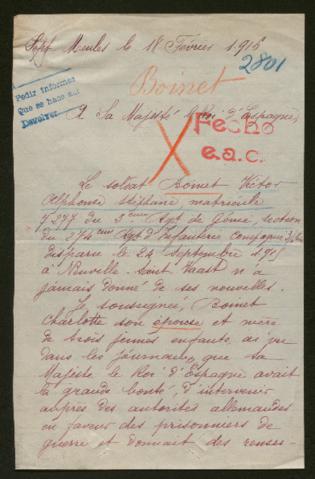 Sept Meules le 18 Février 1916
2801
Pedir informes
Que se hace aut
Devolver
Boinet
A Sa Majesté le Roi d'Espagne
Fecho
e.a.c.
Le soldat Boinet Victor
Alphonse matricule
du 3ème Rgt de Génie, section
du 274ème Rgt d'Infanterie
disparu le 24 Septembre 1915
à Neuville-Saint-Vaast n'a
jamais donné de ses nouvelles.
Je soussignée, Boinet
Charlotte son épouse et mère
de trois jeunes enfants, ai vu
dans les journaux, que sa
Majesté le Roi d'Espagne avait
la grande bonté, d'intervenir
auprès des autorités allemandes
en faveur des prisonniers de
guerre et donnait des rensei-